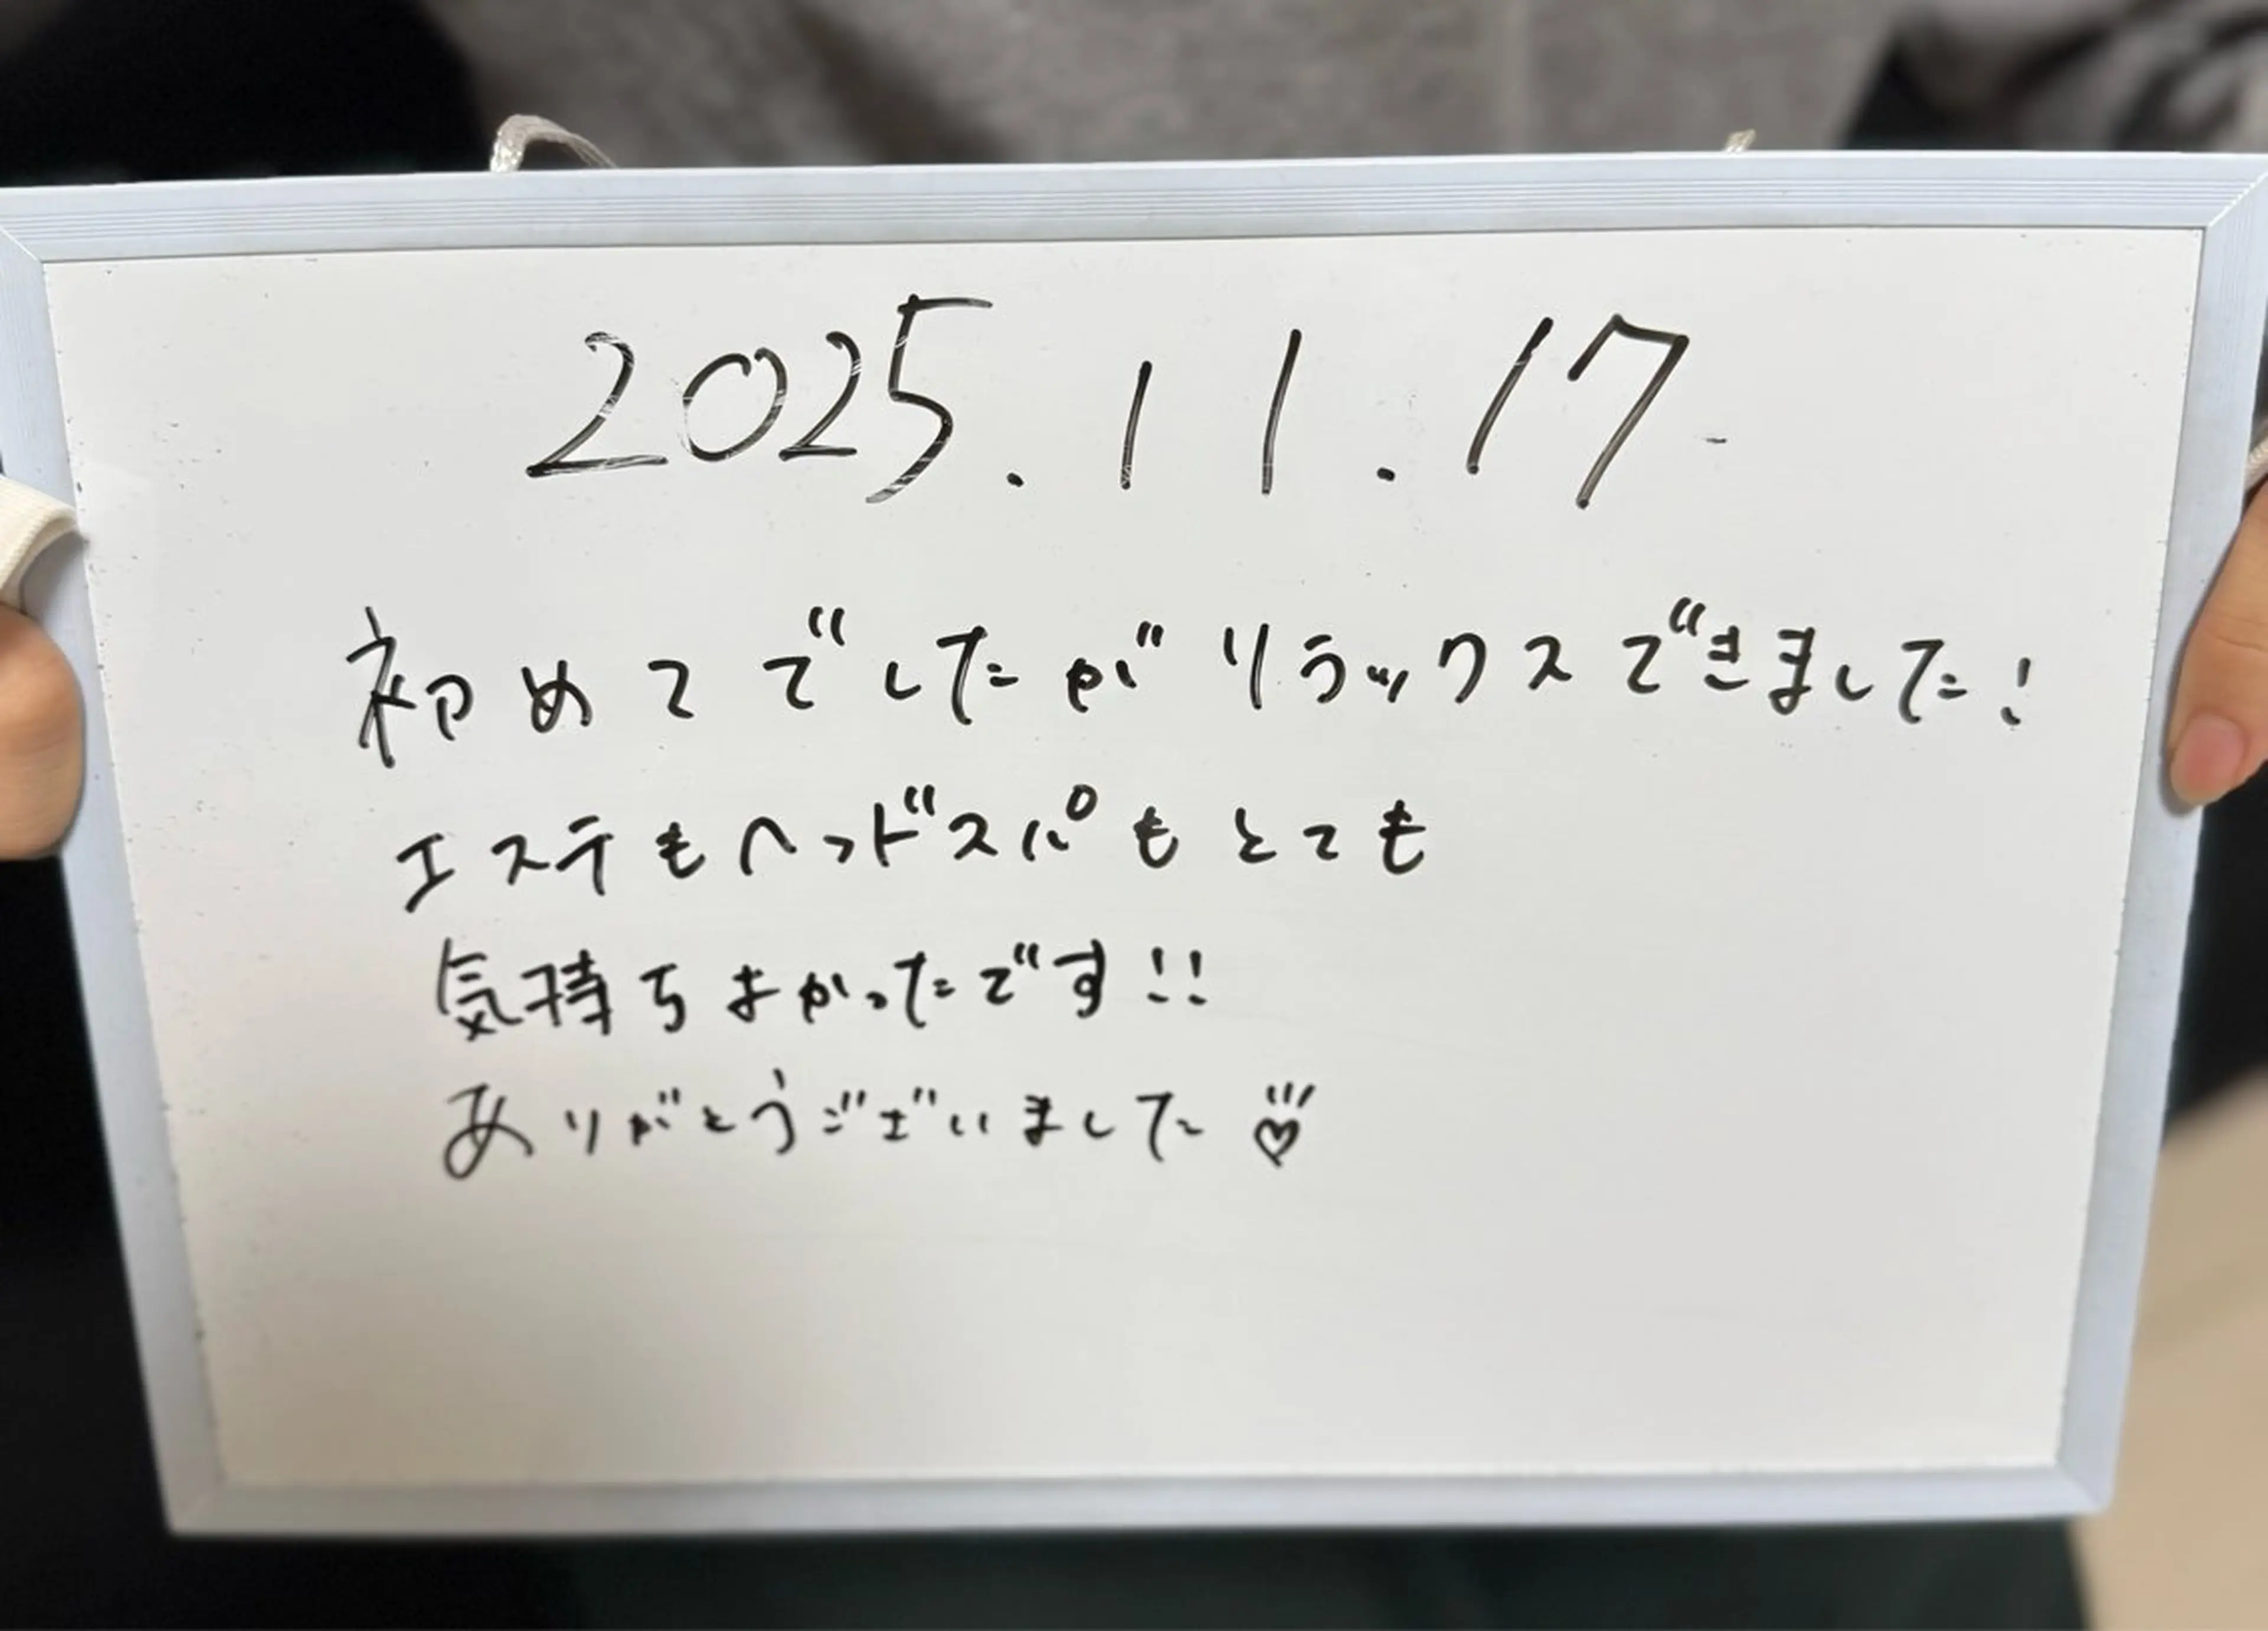 2025.11.17
初めてでしたがリラックスできました!
エステもヘッドスパもとても
気持ちよかったです!!
ありがとうございました♡